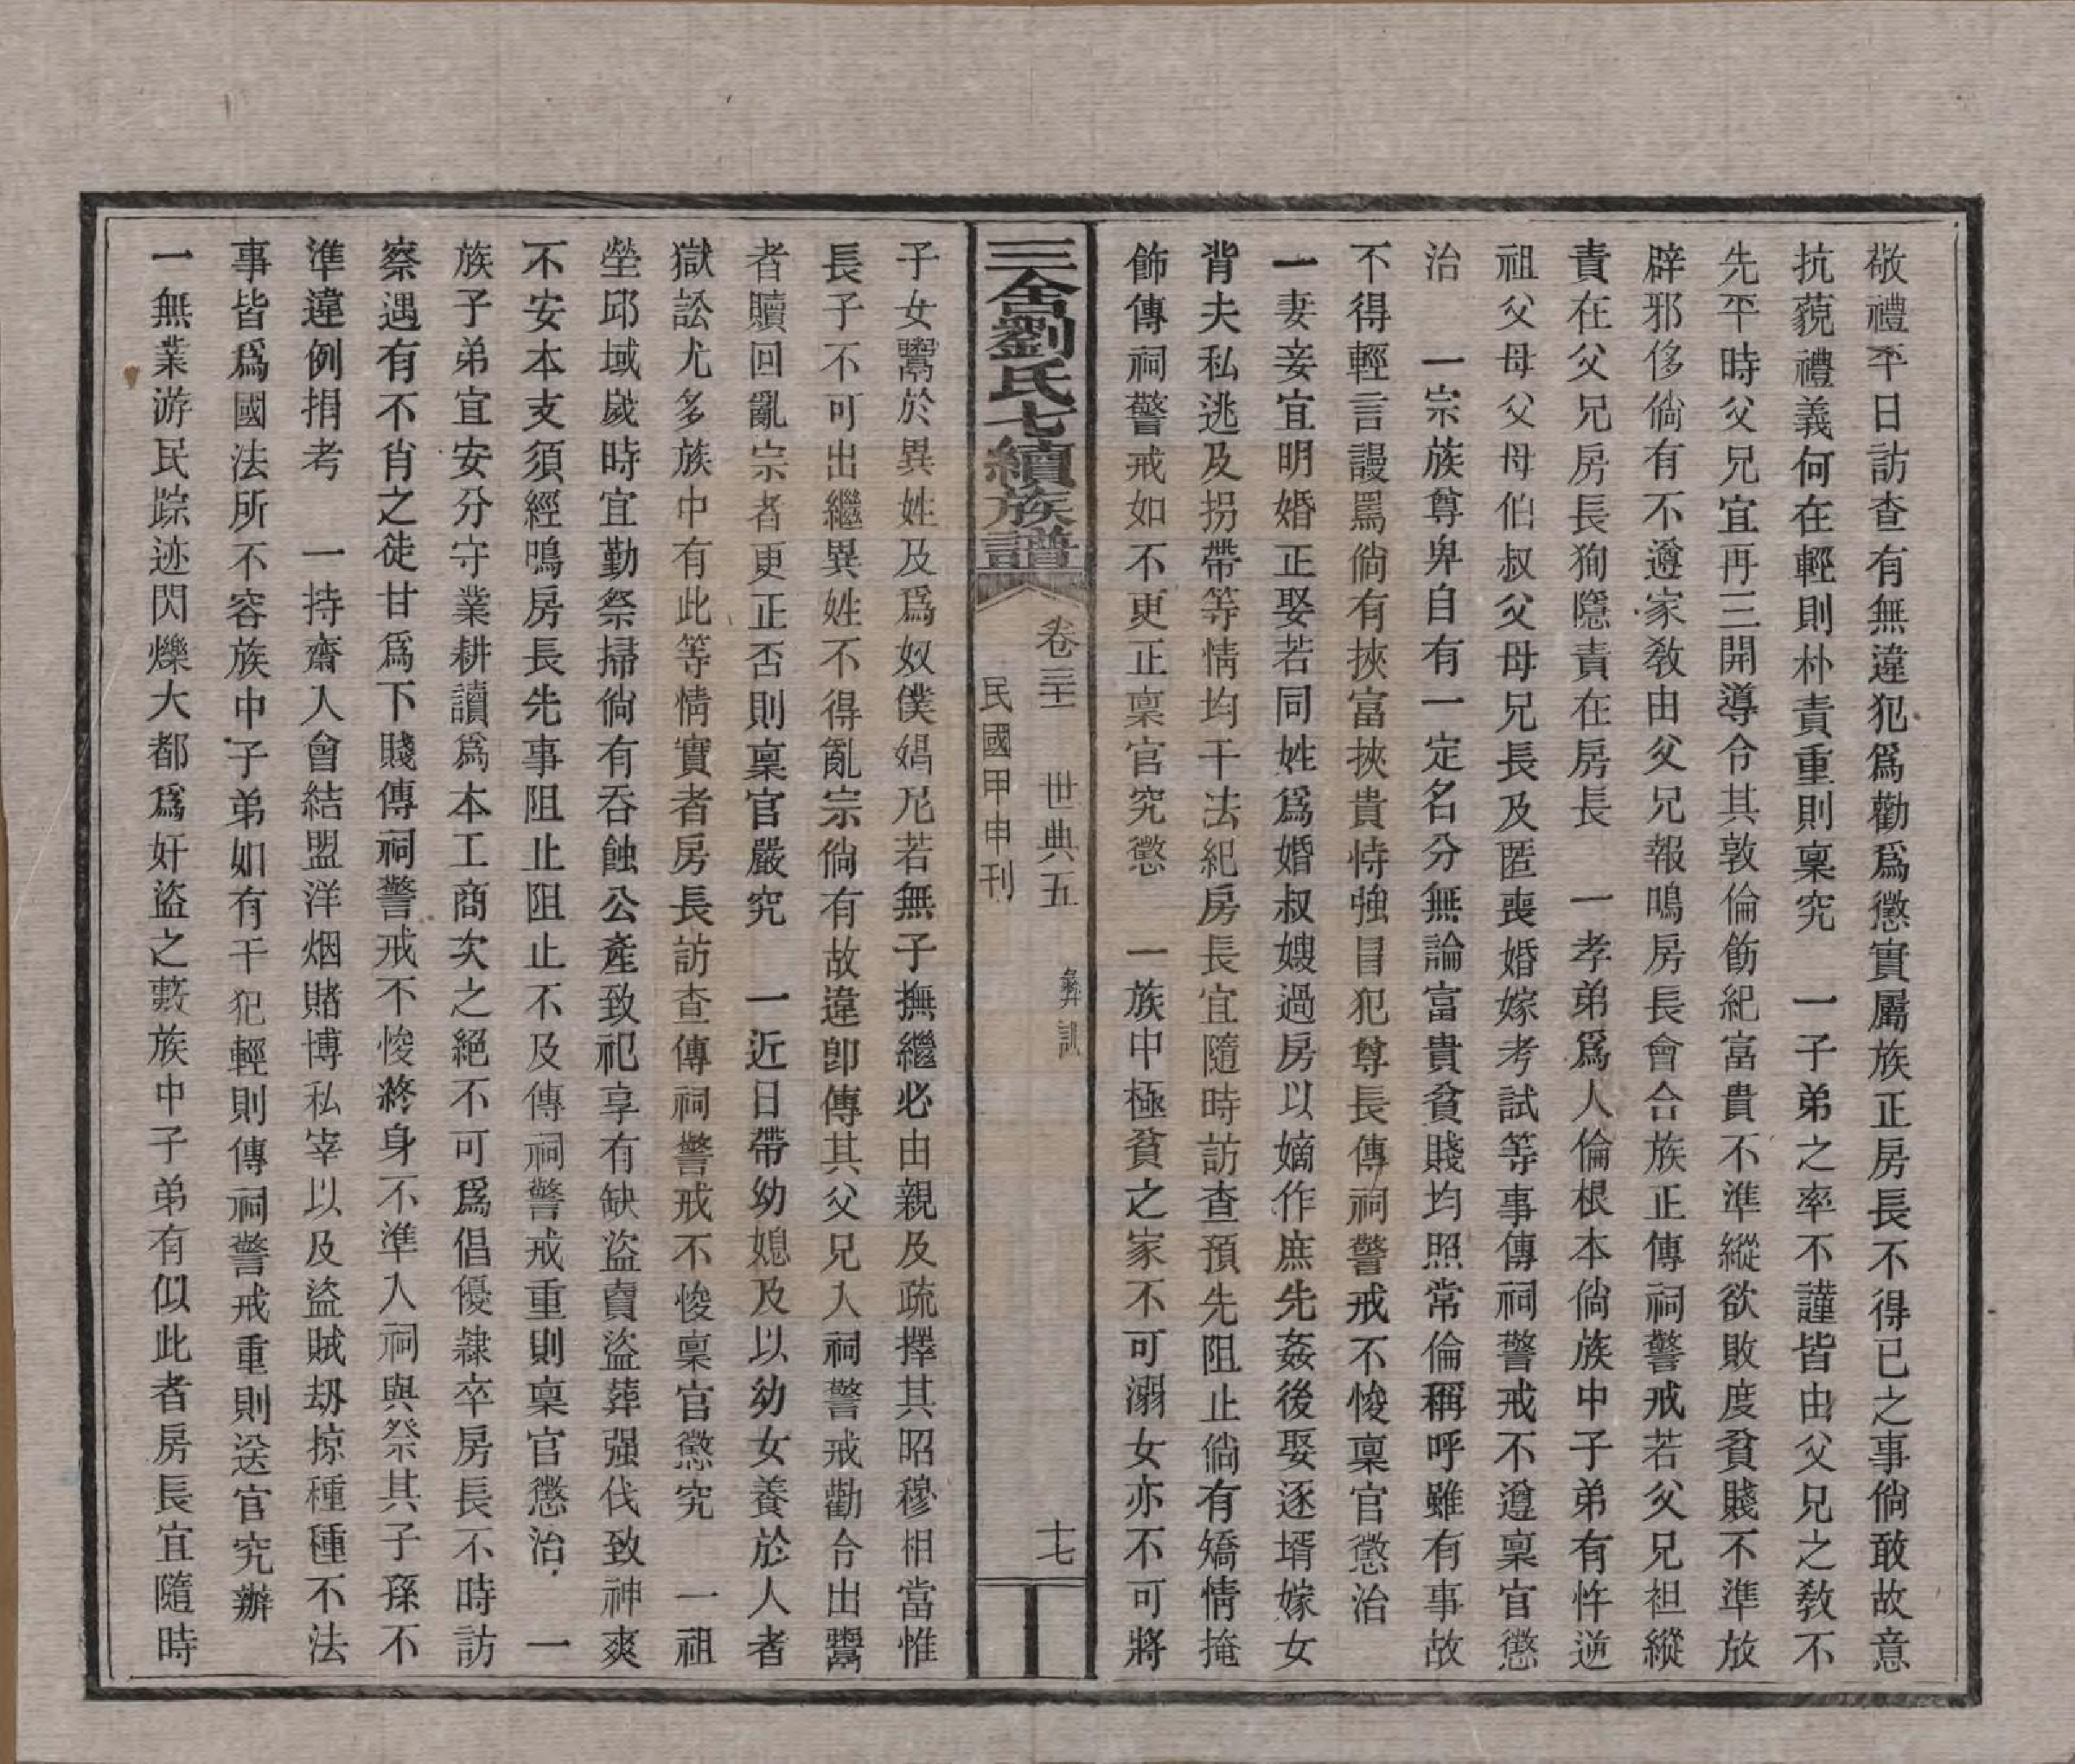 敬禮平日訪查有無違犯爲勸爲懲實屬族正房長不得已之事倘敢故意
抗藐禮義何在輕則朴責重則稟究　一子弟之率不謹皆由父兄之教不
先平時父兄宜再三開導令其敦倫飭紀富貴不準縱欲敗度貧賤不準放
辟邪侈倘有不遵家教由父兄報鳴房長會合族正傳祠警戒若父兄袒縱
責在父兄房長狥隱責在房長　一孝弟爲人倫根本倘族中子弟有忤逆
祖父母父母伯叔父母兄長及匿喪婚嫁考試等事傳祠警戒不遵稟官懲
治　一宗族尊卑自有一定名分無論富貴貧賤均照常倫稱呼雖有事故
不得輕言謾罵倘有挾富挾貴恃強目犯尊長傳祠警戒不悛稟官懲治
一妻妾宜明婚正娶若同姓爲婚叔嫂過房以嫡作庶先姦後娶逐壻嫁女
背夫私逃及拐帶等情均干法紀房長宜隨時訪查預先阻止倘有矯情掩
飾傳祠警戒如不更正稟官究懲　一族中極貧之家不可溺女亦不可將
三舍劉氏七續族譜
卷三十　世典五　彝訓　十七
民國甲申刊
子女鬻於異姓及爲奴僕娼尼若無子撫繼必由親及疏擇其昭穆相當惟
長子不可出繼異姓不得亂宗倘有故違卽傳其父兄入祠警戒勸令出鬻
者贖回亂宗者更正否則稟官嚴究　一近日帶幼媳及以幼女養於人者
獄訟尤多族中有此等情實者房長訪查傳祠警戒不悛稟官懲究　一祖
塋邱域歲時宜勤祭掃倘有吞蝕公產致祀享有缺盜賣盜葬强伐致神爽
不安本支須經鳴房長先事阻止阻止不及傳祠警戒重則稟官懲治　一
族子弟宜安分守業耕讀爲本工商次之絕不可爲倡優隸卒房長不時訪
察遇有不肖之徒甘爲下賤傳祠警戒不悛終身不準入祠與祭其子孫不
準違例捐考　一持齋入會結盟洋烟賭博私宰以及盜賊刼掠種種不法
事皆爲國法所不容族中子弟如有干犯輕則傳祠警戒重則送官究辦
一無業游民踪迹閃爍大都爲奸盜之藪族中子弟有似此者房長宜隨時